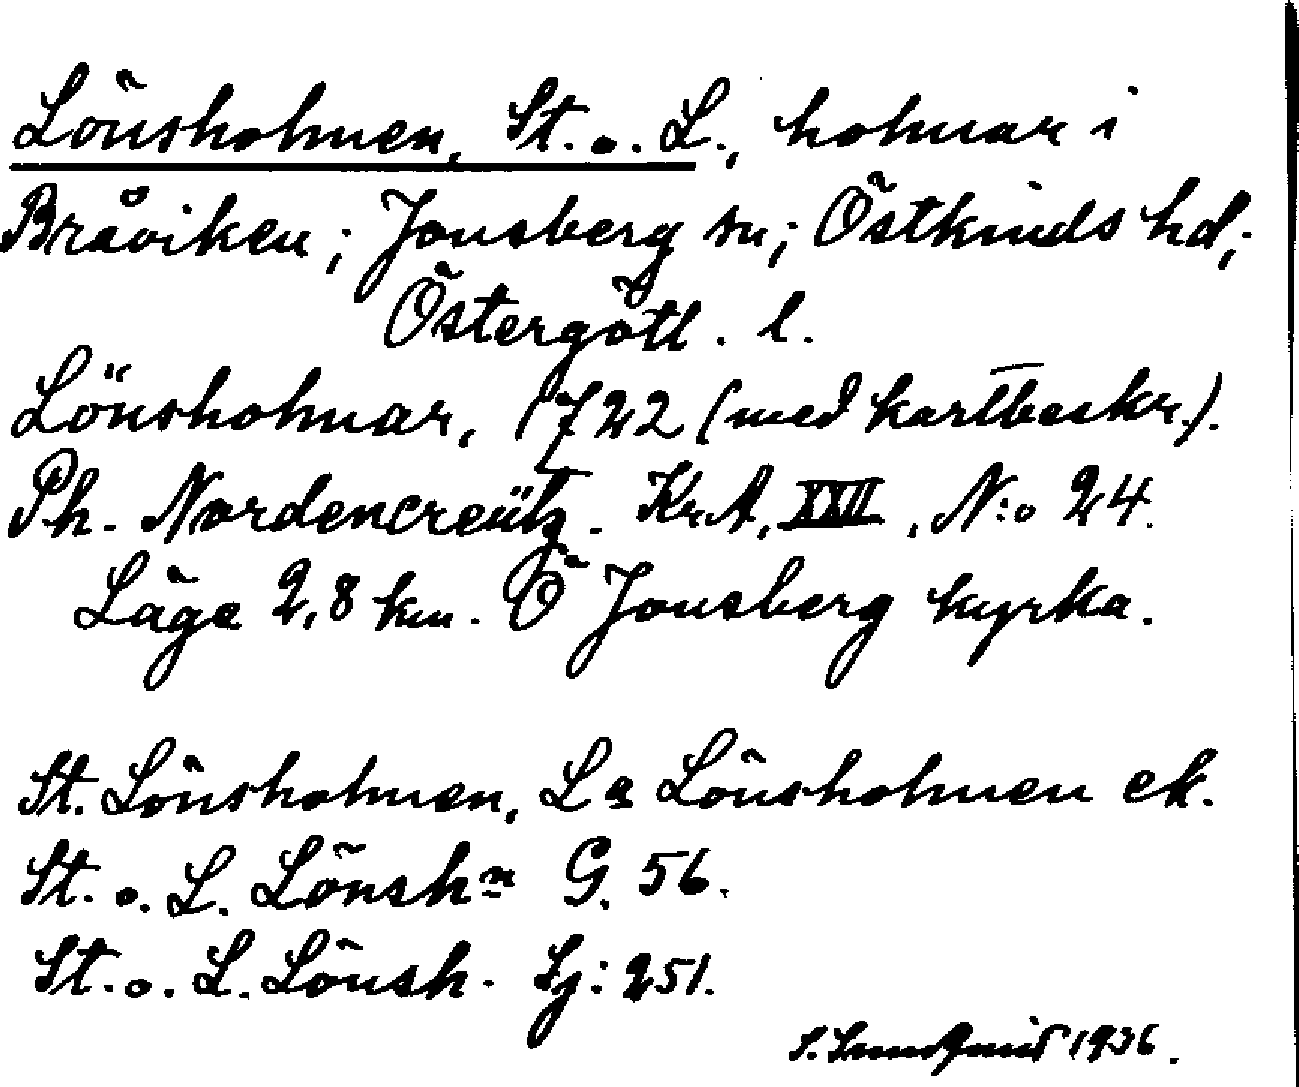 Lönsholmen, St. o. L., holmar i
Bråviken; Jonsberg sn; Östkinds hd;
Östergötl. l.
Lönsholmar, 1722 (med kartbeskr.).
Ph. Nordencreütz. KrA, XXII, N:o 24.
Läge 2,8 km. Ö Jonsberg kyrka.
St. Lönsholmen, La Lönsholmen ek.
St. o. L. Lönshn G. 56.
St. o. L. Lönsh. Sj: 251.
S. Lundqvist 1936.